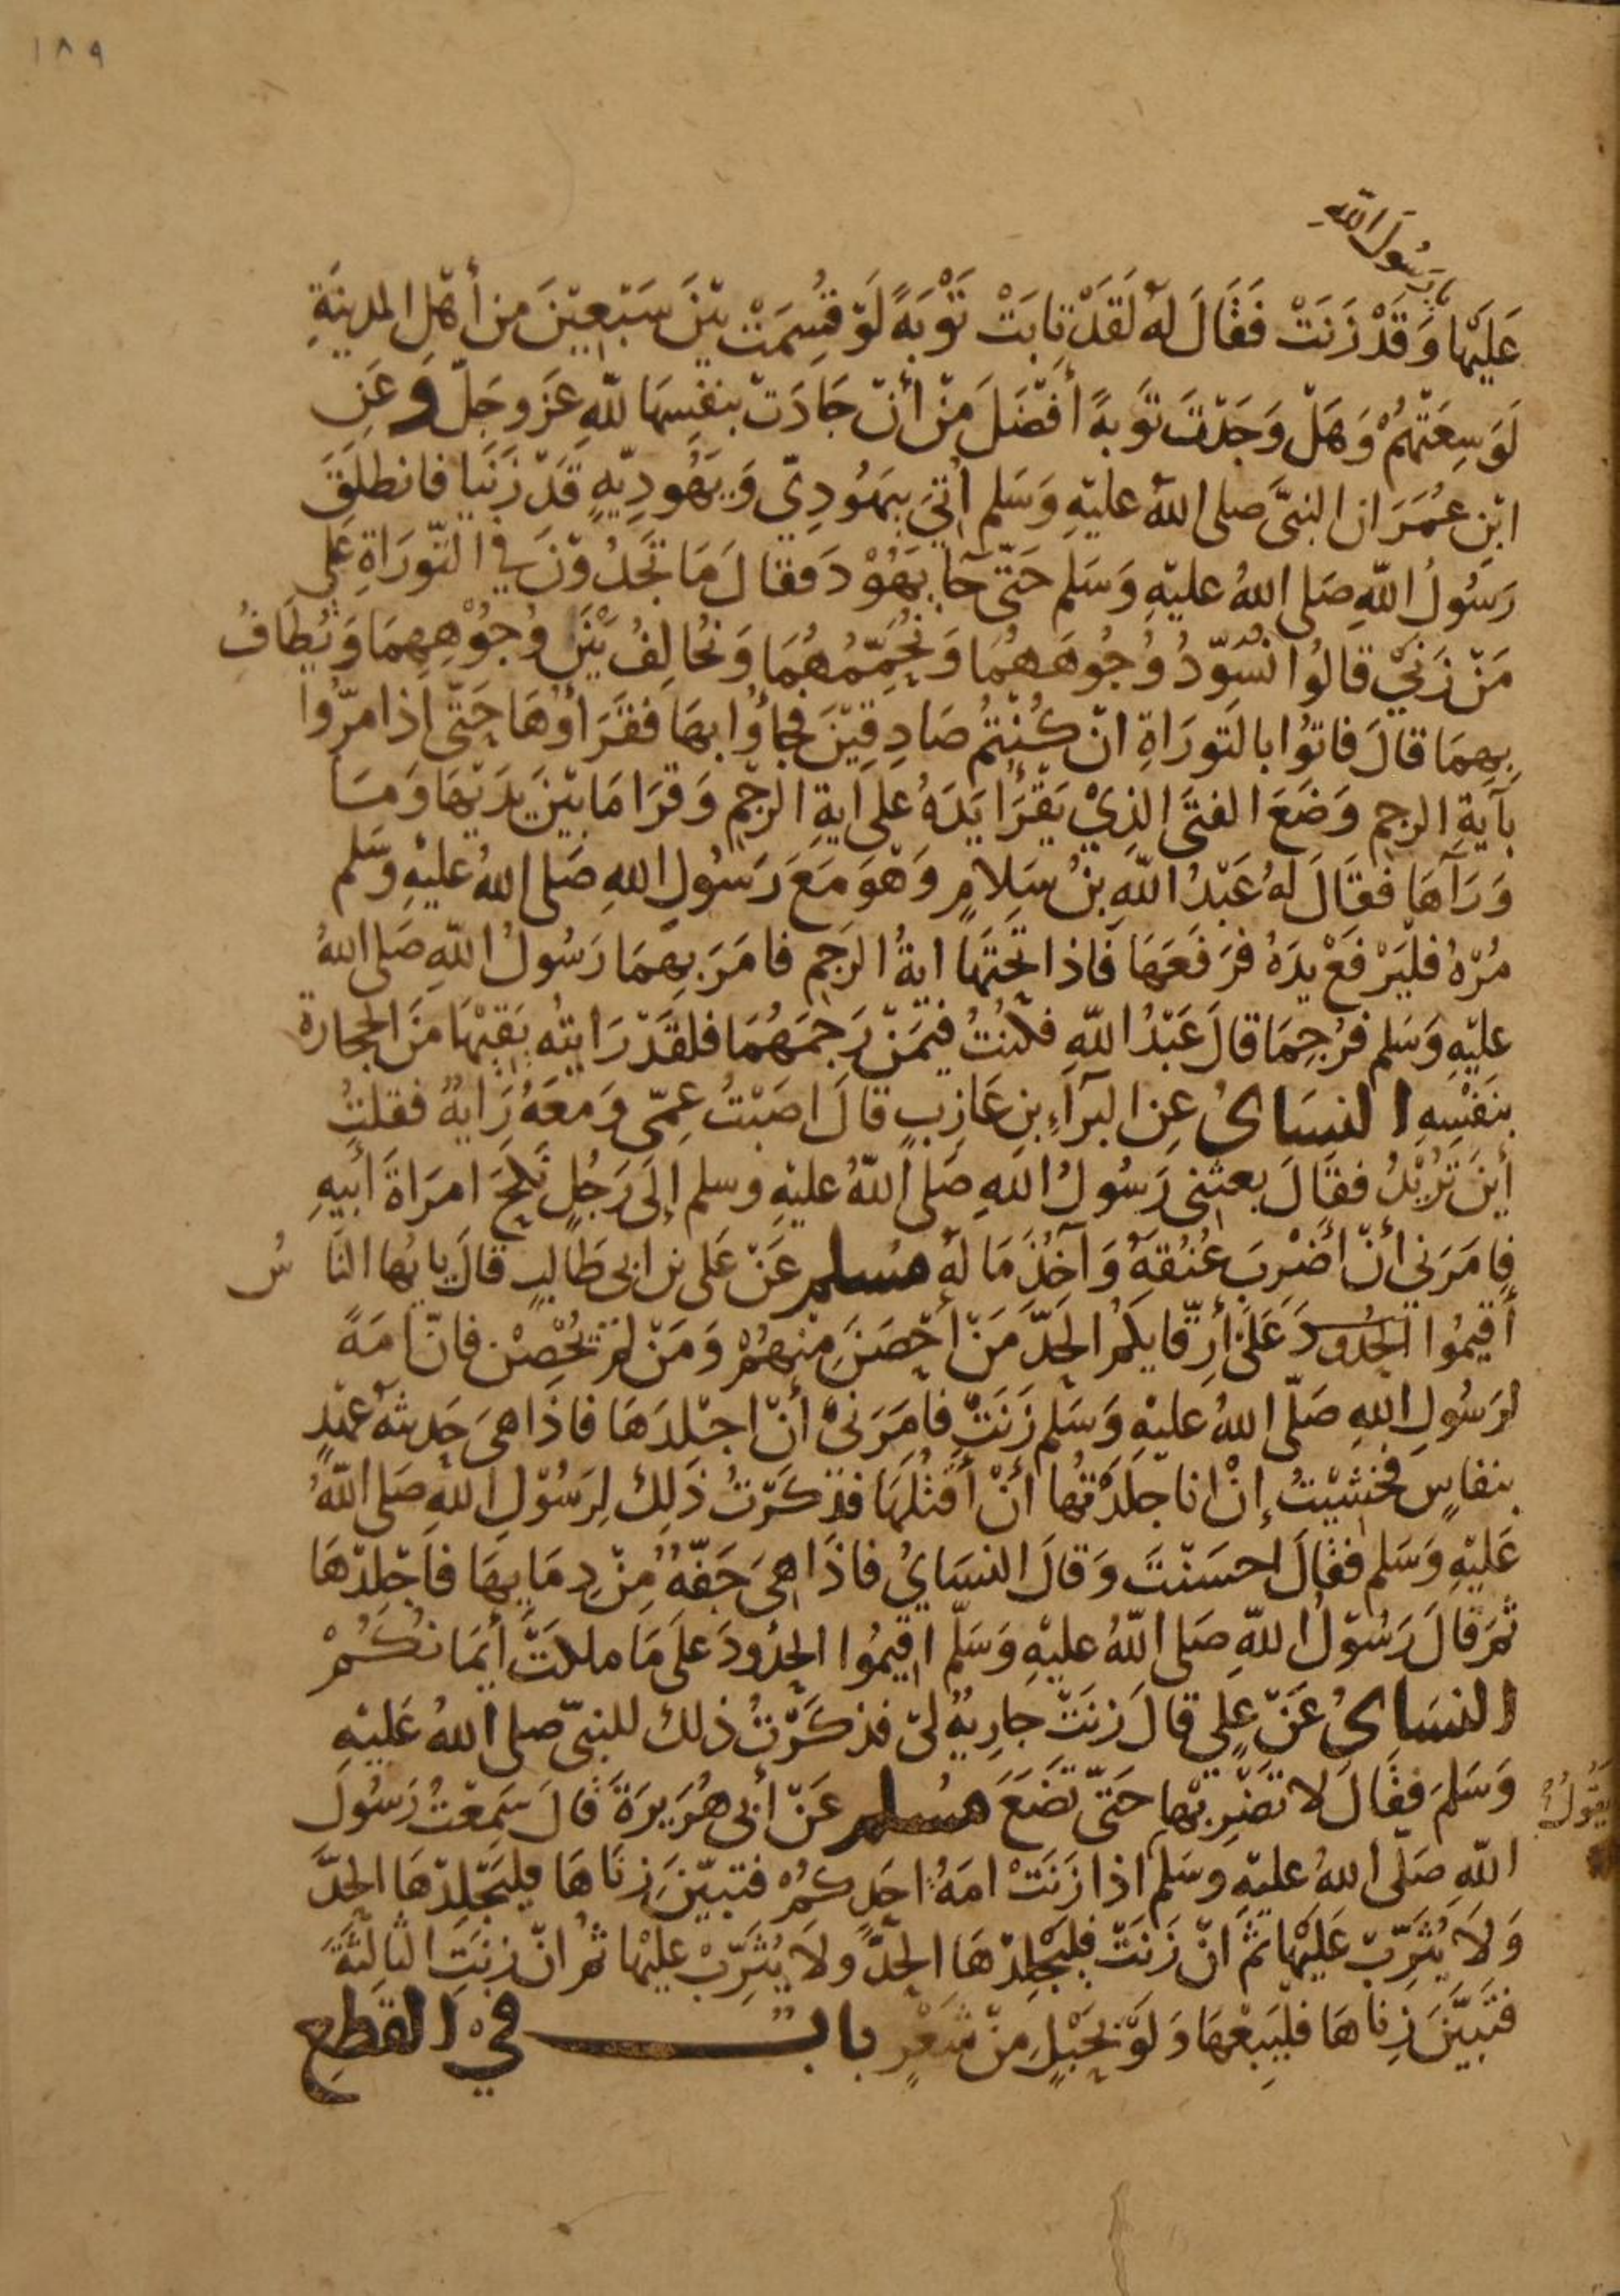 ١٨٩
يا رسول الله
عَلَيْهَا وَقَدْ زَنَتْ فَقَالَ لَهُ لَقَدْ تَابَتْ تَوْبَةً لَوْ قُسِمَتْ بَيْنَ سَبْعِيْنَ مِنْ أَهْلِ المدينَةِ
لَوَسِعَتْهُمْ وَهَلْ وَجَدْتَ تَوبةً أَفْضَلَ مِنْ أَنْ جَادَتْ بِنَفْسِهَا للهِ عَزَّ وَجَلَّ وَعَنِ
ابْنِ عُمَرَ ان النبيَّ صلى اللهُ عليْهِ وَسَلم أُتِيَ بِيَهُودِيّ وَيَهُودِيّةٍ قَدْ زَنَيَا فانطلَقَ
رَسُولُ اللهِ صَلى اللهُ عليْهِ وَسَلم حَتّى جآ يَهُوْدَ فقالَ مَا تَجِدُوْنَ فِي التَّورَاةِ عَلَى
مَنْ زَنَيَ قالُوا نُسَوِّدُ وُجُوهَهُمَا وَنُحَمِّمُهُمَا وَنُخالِفُ بَيْنَ وُجُوْهِهِمَا وَيُطَافُ
بِهِمَا قالَ فاتُوا بالتَورَاةِ انْ كُنْتُمْ صَادِقِيْنَ فجاؤُا بهَا فَقَرَأوْهَا حَتّى اذا مرُّوا
بِآيَةِ الرجم وَضَعَ الفتَى الذِيْ يَقْرَا يَدَهُ على ايَةِ الرَّجْمِ وَقَرَا مَا بَيْنَ يَدَيْهَا وَمَا
وَرَآهَا فقَالَ لَهُ عَبْدُ اللهِ بْنُ سَلامٍ وَهْوَ مَعَ رَسُولِ اللهِ صَلى اللهُ عليْهِ وسَلم
مُرْهُ فلْيَرْفَعْ يدَهُ فرَفعَهَا فَاذا تَحْتَهَا ايَةُ الرَجمِ فامَرَ بِهِمَا رَسُولُ اللهِ صَلى اللهُ
عليْهِ وَسَلم فرُجِمَا قالَ عَبْدُ اللهِ فكُنْتُ فيْمَنْ رَجَمَهُمَا فلقَدْ رَايتُه يَقِيْهَا مِنَ الحجارة
بنَفْسِهِ النسَائيُ عن البرَآءِ بنِ عَازِبٍ قالَ اصَبْتُ عِمّى وَمَعَهُ رَايةٌ فقلتُ
أينَ تُرِيْدُ فقَالَ بعثنى رَسُولُ اللهِ صَلى اللهُ عليْهِ وسلم إلَى رَجُلٍ نَكَحَ امرَاةَ أبيهِ
فامَرَنِي أنْ أضْرِبَ عُنُقَهُ وَآخُذَ مَا لَهُ مُسلم عَنْ عَلى بن ابى طَالبٍ قالَ يا يُها النَّاسُ
أقيمُوا الحُدُودَ عَلَى أرِقّايِكُمُ الحَدَّ مَنْ احْصَنَ مِنْهُمْ وَمَنْ لمْ يُحْصِنْ فانّ امَةً
لرَسُولِ اللهِ صَلّى اللهُ عليْهِ وَسَلم زَنَتْ فامَرَنىْ أنْ اجْلِدَهَا فاذَا هىَ حَدِيثهُ عَهْدٍ
بنفاسٍ فخشيْتُ إنْ انا جَلَدْتُها أنْ أقْتُلَهَا فذكَرْتُ ذَلِك لِرَسُوْلِ اللهِ صَلى اللهُ
عَليْهِ وَسَلم فقالَ احسَنْتَ وَقالَ النسَايُ فاذَا هىَ جَفّهُ مِنْ دِمَايِهَا فاَجْلِدْهَا
ثمَّ قالَ رَسُوْلُ اللهِ صَلى اللهُ عليْهِ وَسَلّم اقيمُوا الحُدُودَ علَى مَا ملكتْ أيْمَانُكُمْ
النسَائيُ عَنْ علي قالَ زنَتْ جَارِيةٌ لىْ فذكَرْتُ ذلك للنبيّ صلى اللهُ عَليْهِ
وَسَلمَ فقَالَ لا تَضْرِبْهَا حَتّى تَضَعَ مُسلم عَنْ أبى هُرَيرَةَ قالَ سَمِعْتُ رَسُولَ
يَقُولُ
اللهِ صَلّى اللهُ عليْهِ وسَلم اذا زَنَتْ امَةُ احَدِكُمْ فتبيّنَ زنَاهَا فليَجْلِدْهَا الحدَّ
وَلَا يُثَرِّبْ عَلَيْهَا ثمّ انْ زَنَتْ فليَجْلِدْهَا الحدَّ ولَا يُثَرِّبْ عليْهَا ثمّ انْ زنَتِ الثالثَةَ
فتَبيَّنَ زِناهَا فليَبِعْهَا وَلَوْ بحَبْلٍ مِنْ شَعْرٍ بابٌ في القطع